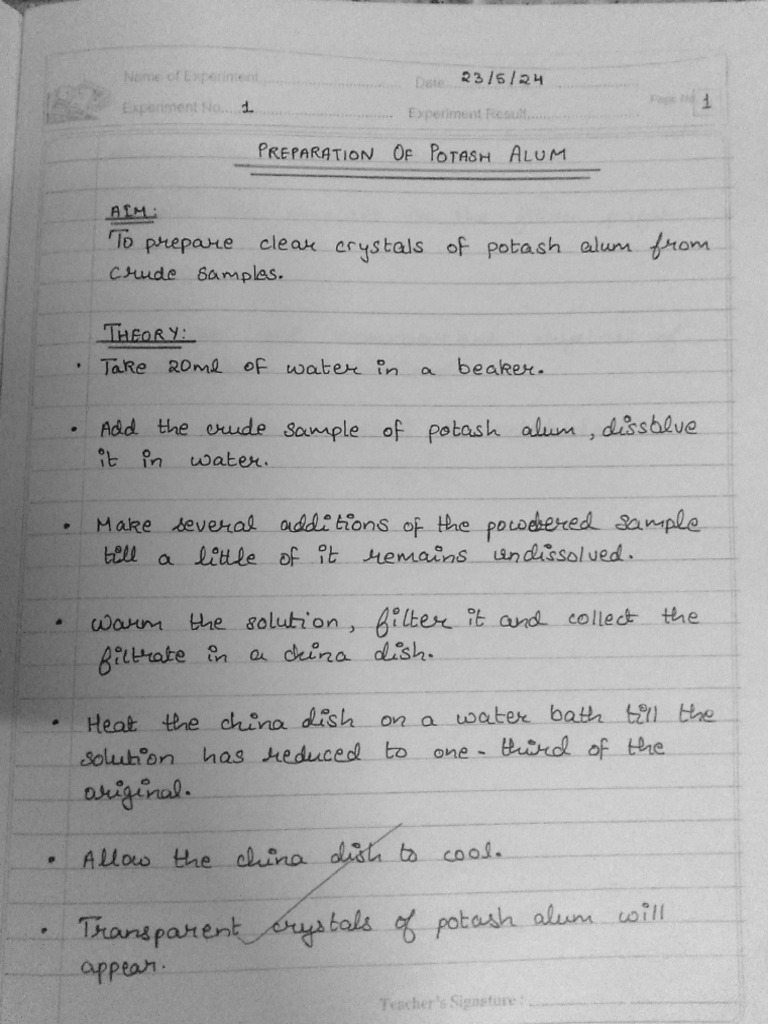 Name of Experiment ........ Date 23/5/24
Experiment No. 1 Experiment Result........ Page No. 1
PREPARATION OF POTASH ALUM
AIM:
To prepare clear crystals of potash alum from
crude samples.
THEORY:
• Take 20ml of water in a beaker.
• Add the crude sample of potash alum, dissolve
it in water.
• Make several additions of the powdered sample
till a little of it remains undissolved.
• Warm the solution, filter it and collect the
filtrate in a china dish.
• Heat the china dish on a water bath till the
solution has reduced to one-third of the
original.
• Allow the china dish to cool.
• Transparent crystals of potash alum will
appear.
Teacher's Signature :